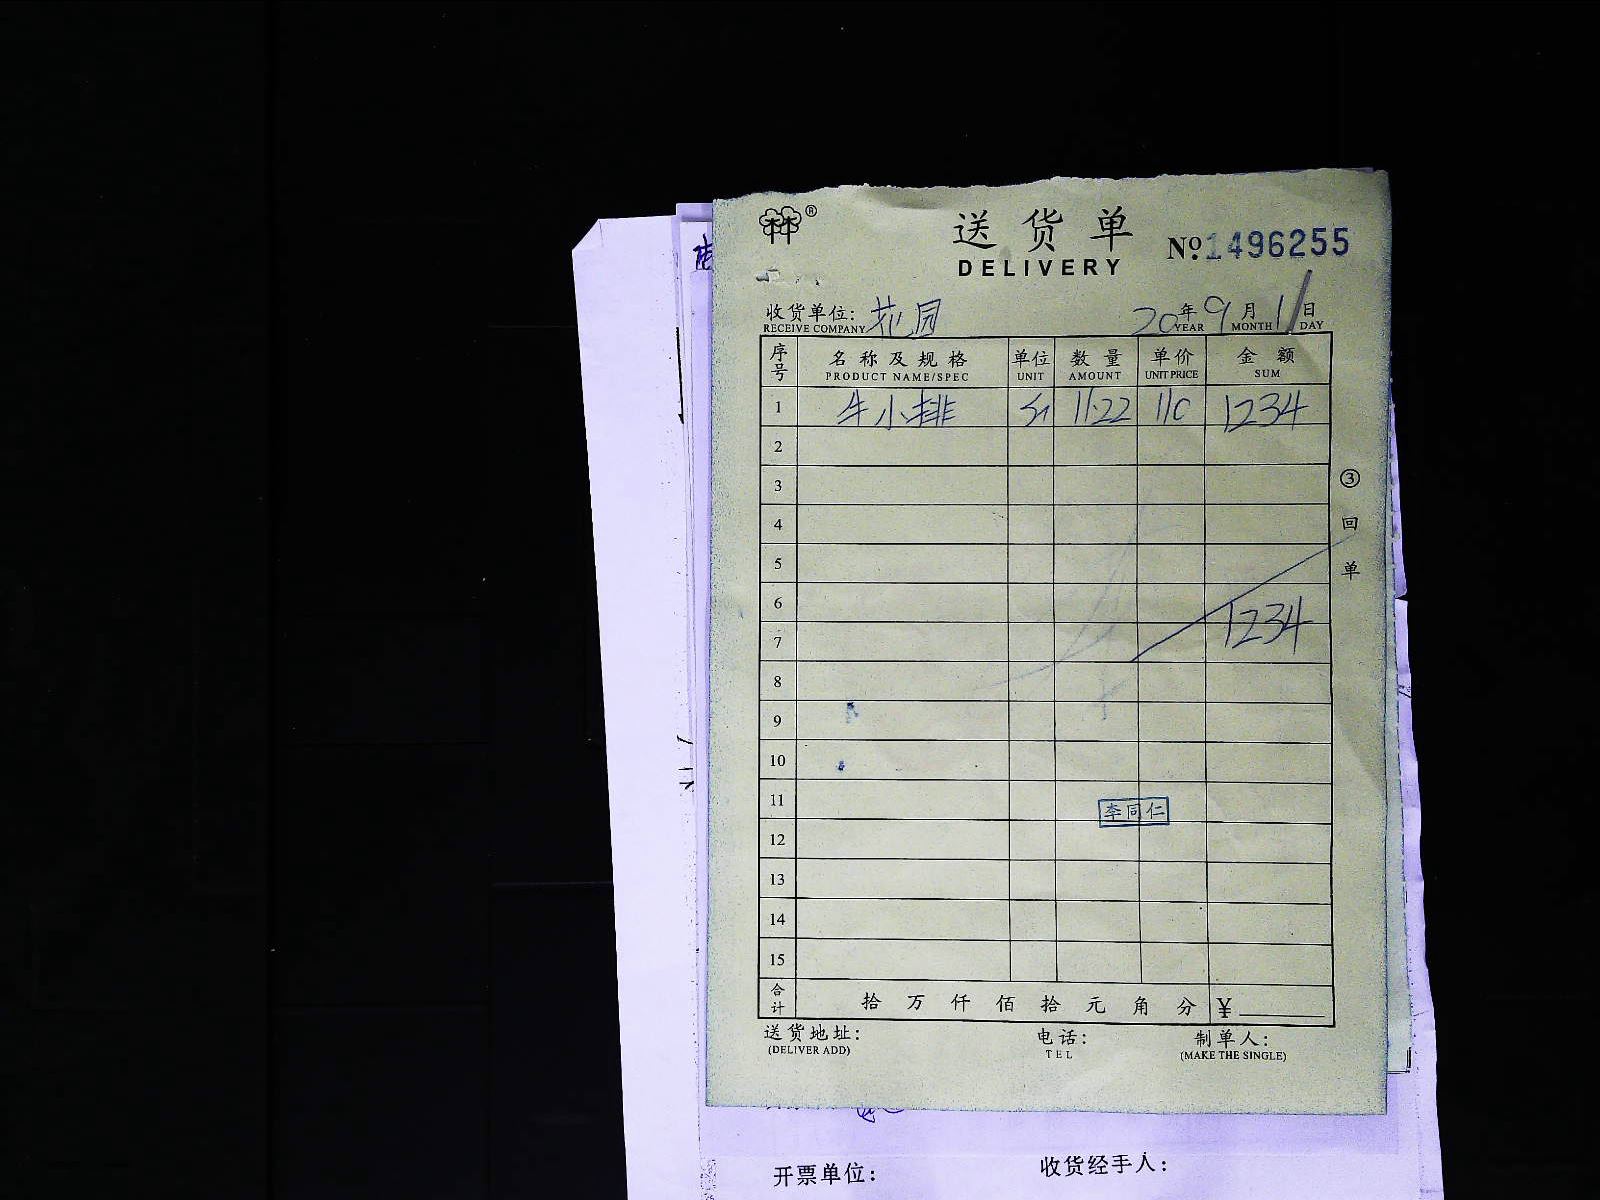 送货单
DELIVERY
№1496255
收货单位: 花园 20年9月11日
RECEIVE COMPANY YEAR MONTH DAY
序号 名称及规格 单位 数量 单价 金额
PRODUCT NAME/SPEC UNIT AMOUNT UNIT PRICE SUM
1 牛小排 11.22 110 1234
2
3
③
4
回
5
单
6
1234
7
8
9
10
11
李同仁
12
13
14
15
合计 拾万仟佰拾元角分 ¥
送货地址: 电话: 制单人:
(DELIVER ADD) TEL (MAKE THE SINGLE)
开票单位: 收货经手人: